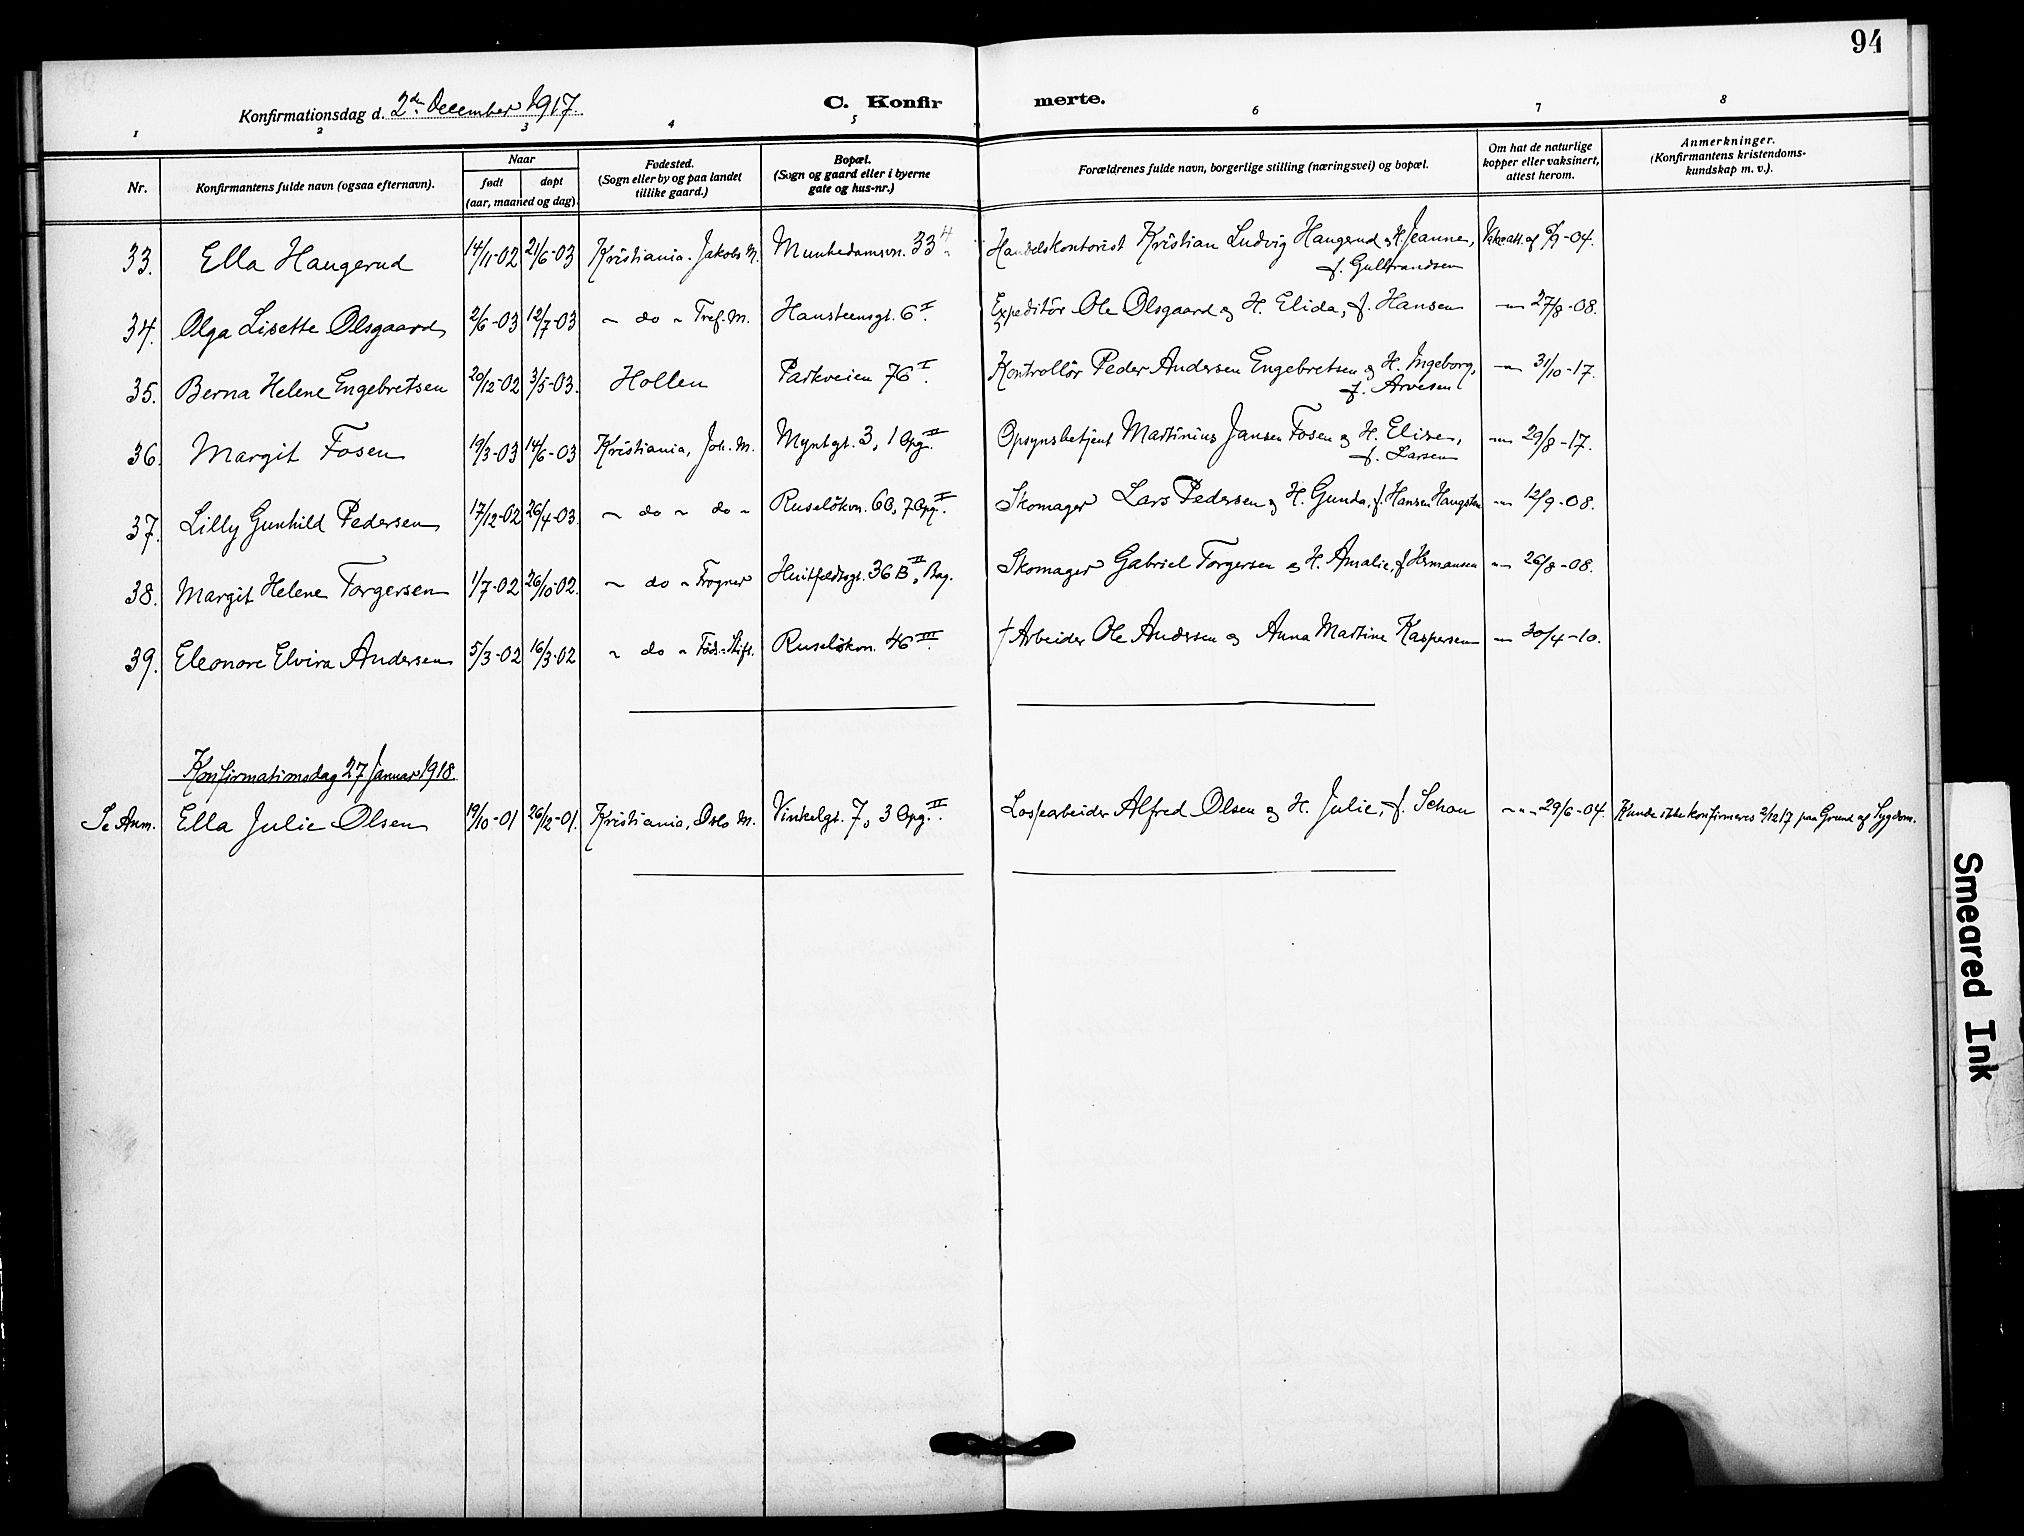 94
Konfirmationsdag d. 2den December 1917. C. Konfirmerte.
1 2 3 4 5 6 7 8
Nr. Konfirmantens fulde navn (ogsaa efternavn). Naar født døpt (aar, maaned og dag). Fødested. (Sogn eller by og paa landet tillike gaard.) Bopæl. (Sogn og gaard eller i byerne gate og hus-nr.) Forældrenes fulde navn, borgerlige stilling (næringsvei) og bopæl. Om hat de naturlige kopper eller vaksinert, attest herom. Anmerkninger. (Konfirmantens kristendoms-kundskap m. v.).
33. Ella Haugerud 14/11-02 21/6-03 Kristiania. Jakobs M. Munkedamsvn. 33 4. Handelskontorist Kristian Ludvig Haugerud og H. Jeanne, f. Gulbrandsen Vakc.att. af 6/9-04.
34. Olga Lisette Olsgaard 2/6-03 12/7-03 " do " Tref. M. Hansteensgt. 6 I. Expeditör Ole Olsgaard og H. Elida, f. Hansen " 27/8-08.
35. Berna Helene Engebretsen 20/12-02 3/5-03. Hollen Parkveien 76 I. Kontrollör Peder Andersen Engebretsen og H. Ingeborg, f. Arvesen " 31/10-17.
36. Margit Fosen 19/3-03 14/6-03 Kristiania, Joh. M. Myntgt. 3, 1 Opg. II Opsynsbetjent Martinius Jansen Fosen og H. Elise, f. Larsen " 29/8-17.
37. Lilly Gunhild Pedersen 17/12-02 26/4-03. " do " do " Ruselökvn. 60, 7 Opg. II. Skomager Lars Pedersen og H. Gunda, f. Hansen Haugsten " 12/9-08.
38. Margit Helene Torgersen 1/7-02 26/10-02. " do " Frogner Huitfeldtsgt. 36 B II, Bag. Skomager Gabriel Torgersen og H. Amalie, f. Hermansen " 26/8-08.
39. Eleonore Elvira Andersen 5/3-02 16/3-02 " do " Föds.-Stift. Ruselökvn. 46 III. † Arbeider Ole Andersen og Anna Martine Kaspersen " 30/4-10.
Konfirmationsdag 27 Januar 1918.
Se Anm. Ella Julie Olsen 19/10-01 26/12-01. Kristiania, Oslo M. Vinkelgt. 7, 3 Opg. II. Lossearbeider Alfred Olsen og H. Julie, f. Schou " " 29/6-04. Kunde ikke konfirmeres 2/12 17 paa Grund af Sygdom.
Smeared Ink